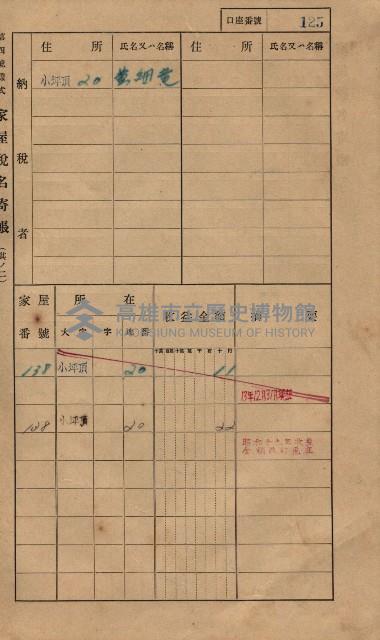 口座番號 125
第四號樣式 家屋稅名寄帳(其ノ一)
納稅者
住所 氏名又ハ名稱 住所 氏名又ハ名稱
小坪頂 20 黃細
家屋番號 所在 摘要
大字 字 地番
高雄市立歷史博物館
KAOHSIUNG MUSEUM OF HISTORY
138 小坪頂 20 11
18年12月31日
138 小坪頂 20 22
昭和十九年
金額改訂更正